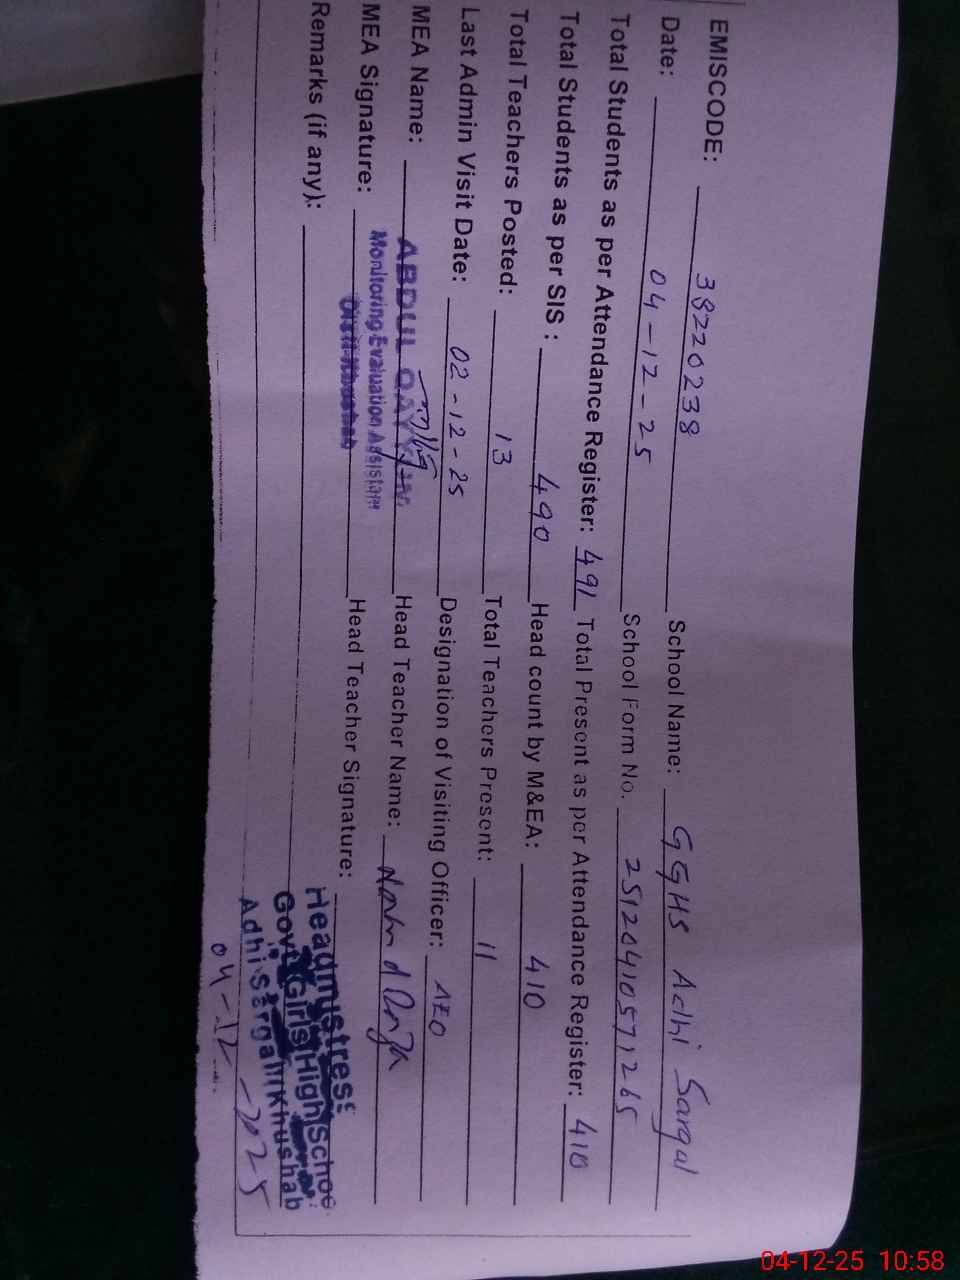 EMISCODE: 38220238 School Name: GGHS Adhi Sargal
Date: 04-12-25 School Form No. 25120410571265
Total Students as per Attendance Register: 491 Total Present as per Attendance Register: 410
Total Students as per SIS : 490 Head count by M&EA: 410
Total Teachers Posted: 13 Total Teachers Present: 11
Last Admin Visit Date: 02-12-25 Designation of Visiting Officer: AEO
MEA Name: ABDUL QAYYUM Head Teacher Name:
MEA Signature: Monitoring Evaluation Assistant Head Teacher Signature:
Distt Khushab
Remarks (if any):
Headmistress
Govt Girls High School
Adhi Sargal Khushab
04-12-2025
04-12-25 10:58